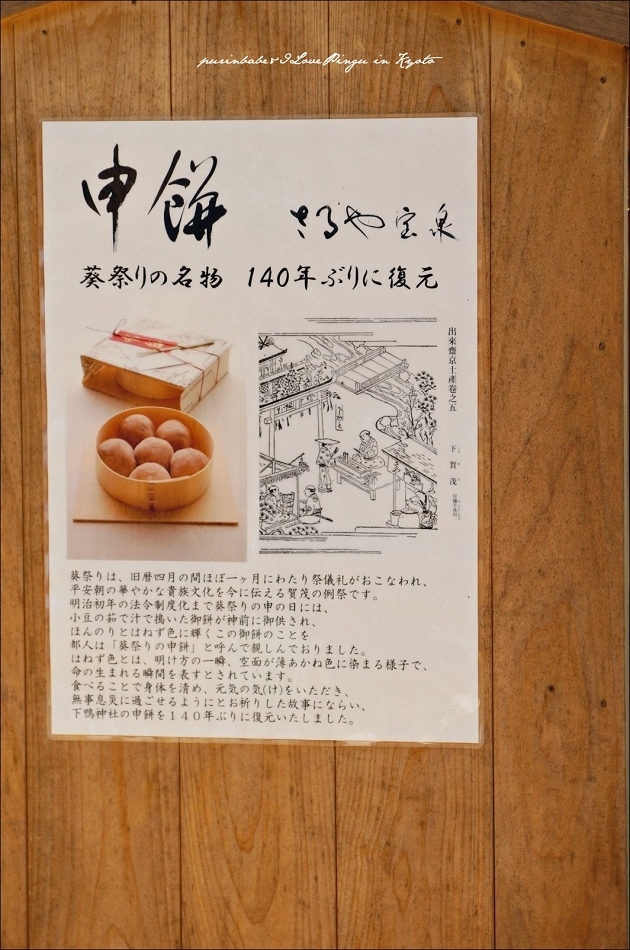 purinbabe & I Love Pingu in Kyoto
申餅
さるや宝泉
葵祭りの名物 140年ぶりに復元
出來齋京土產卷之五
下賀茂
葵祭りは、旧暦四月の間ほぼ一ヶ月にわたり祭儀礼がおこなわれ、
平安朝の華やかな貴族文化を今に伝える賀茂の例祭です。
明治初年の法令制度化まで葵祭りの申の日には、
小豆の茹で汁で搗いた御餅が神前に御供され、
ほんのりとはねず色に輝くこの御餅のことを
都人は「葵祭りの申餅」と呼んで親しんでおりました。
はねず色とは、明け方の一瞬、空面が薄あかね色に染まる様子で、
命の生まれる瞬間を表すとされています。
食べることで身体を清め、元気の気(け)をいただき、
無事息災に過ごせるようにとお祈りした故事にならい、
下鴨神社の申餅を140年ぶりに復元いたしました。